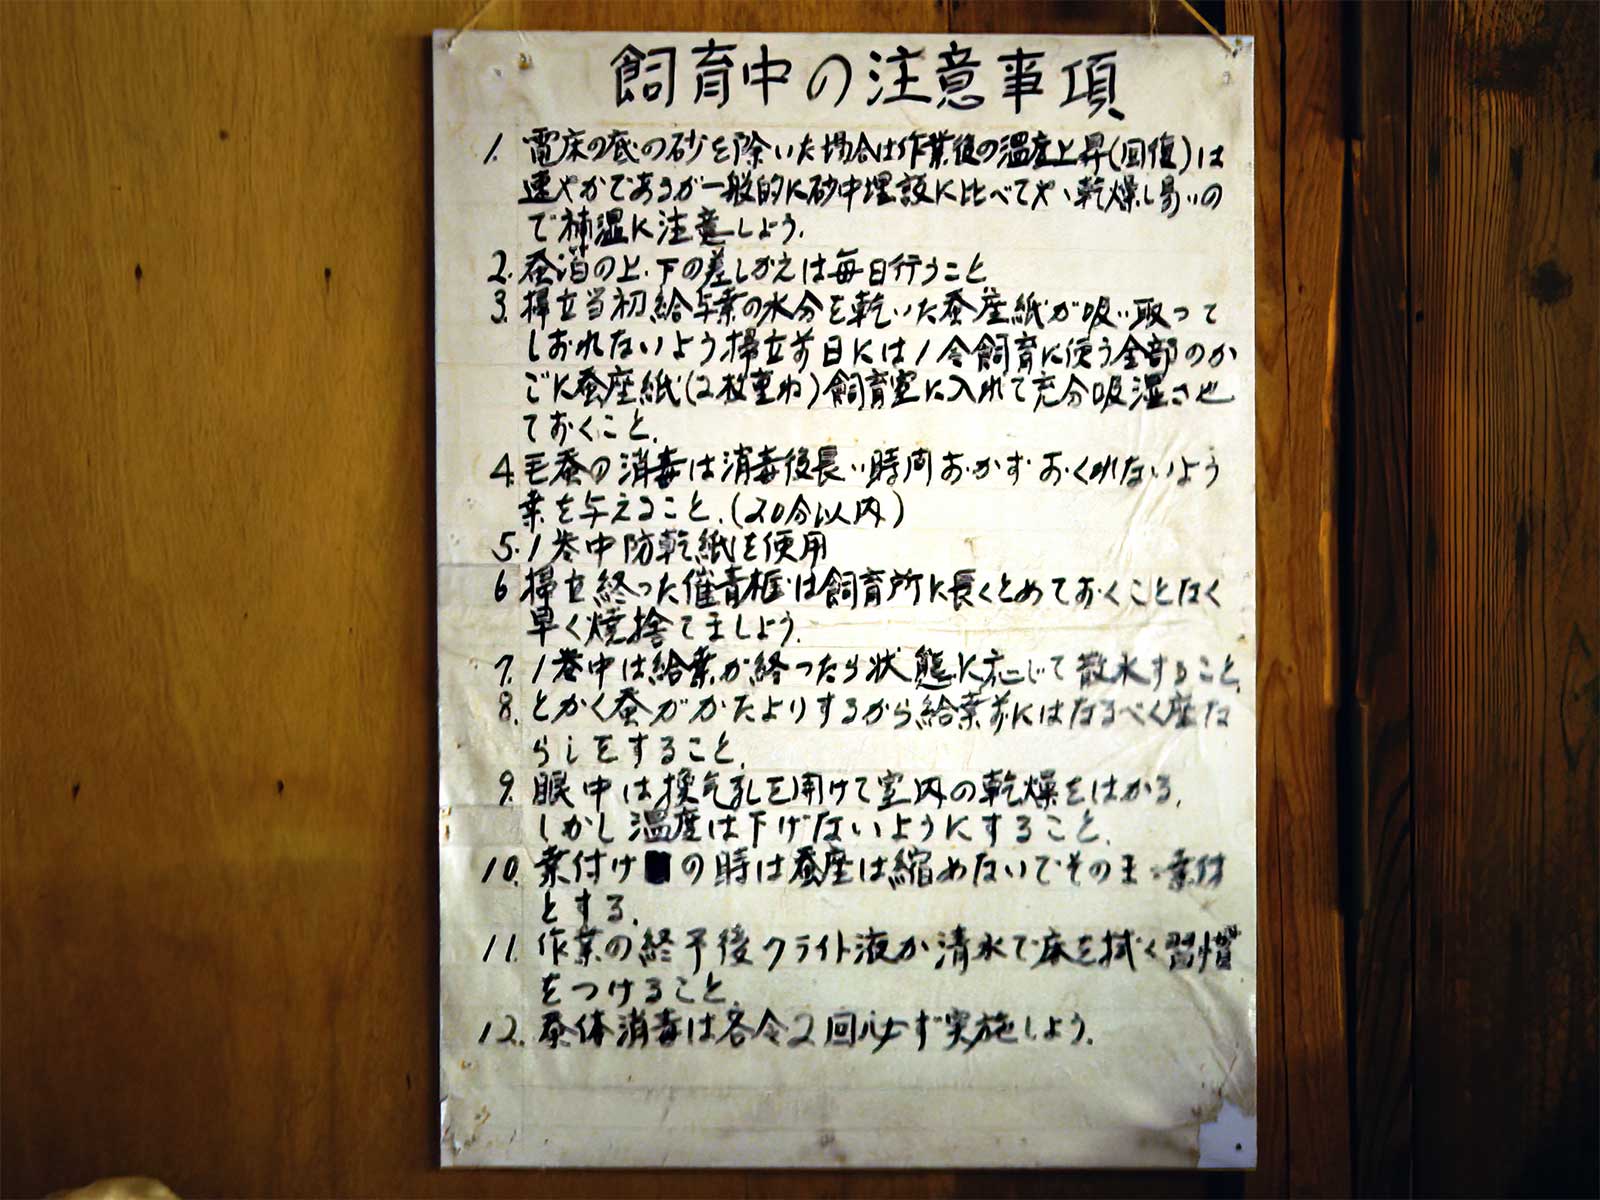 飼育中の注意事項
1. 電床の底の砂を除いた場合は作業後の温度上昇(回復)は
速やかであるが一般的に砂中埋設に比べてやゝ乾燥し易いの
で補湿に注意しよう.
2. 蚕箔の上.下の差しかえは毎日行うこと
3. 掃立当初給与葉の水分を乾いた蚕座紙が吸い取って
しおれないよう掃立前日には1令飼育に使う全部のか
ごに蚕座紙(2枚重ね)飼育室に入れて充分吸湿させ
ておくこと.
4. 毛蚕の消毒は消毒後長い時間おかずおくれないよう
葉を与えること.(20分以内)
5. 1巻中防乾紙を使用
6 掃立終った催青框は飼育所に長くとめておくことなく
早く焼捨てましよう.
7. 1巻中は給葉が終ったら状態に応じて散水すること.
8. とかく蚕がかたよりするから給葉前にはなるべく座な
らしをすること.
9. 眠中は換気孔を開けて室内の乾燥をはかる.
しかし温度は下げないようにすること.
10. 葉付け の時は蚕座は縮めないでそのまゝ葉付
とする.
11. 作業の終予後クライト液か清水で床を拭く習慣
をつけること.
12. 蚕体消毒は各令2回必ず実施しよう.